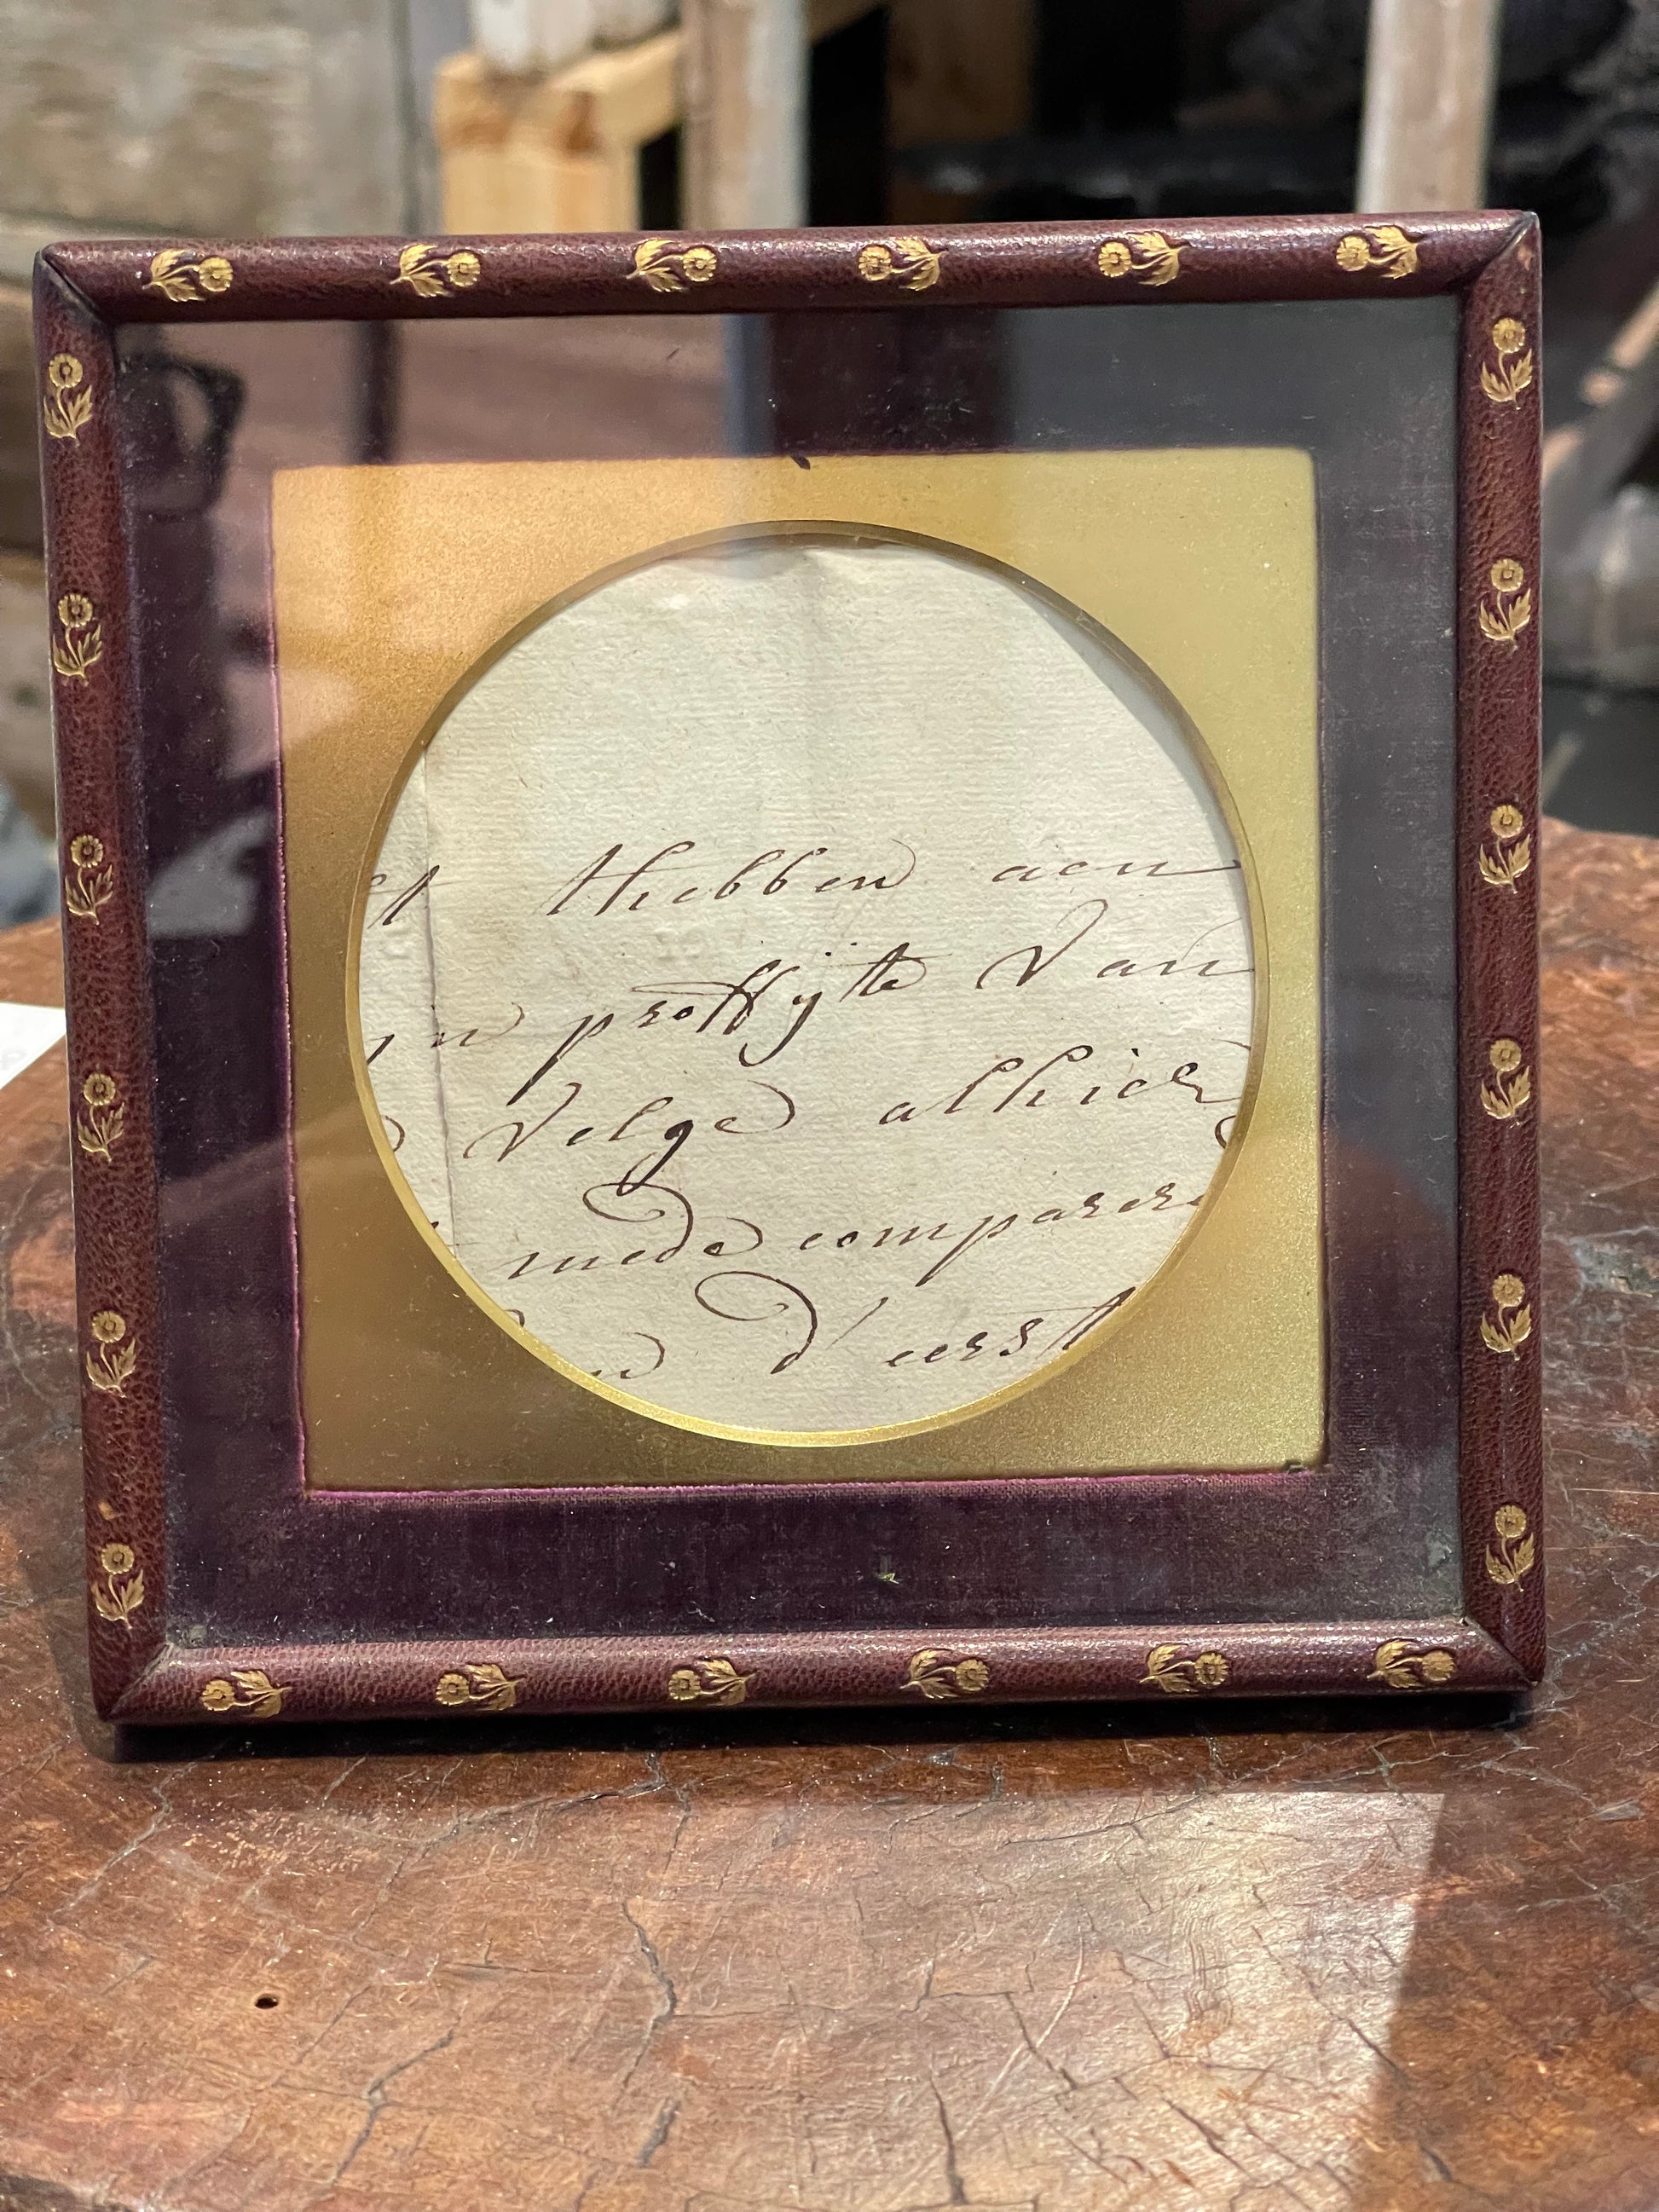 thebben aen
proffijte Van
Velge alhier
mede comparere
d' eerst